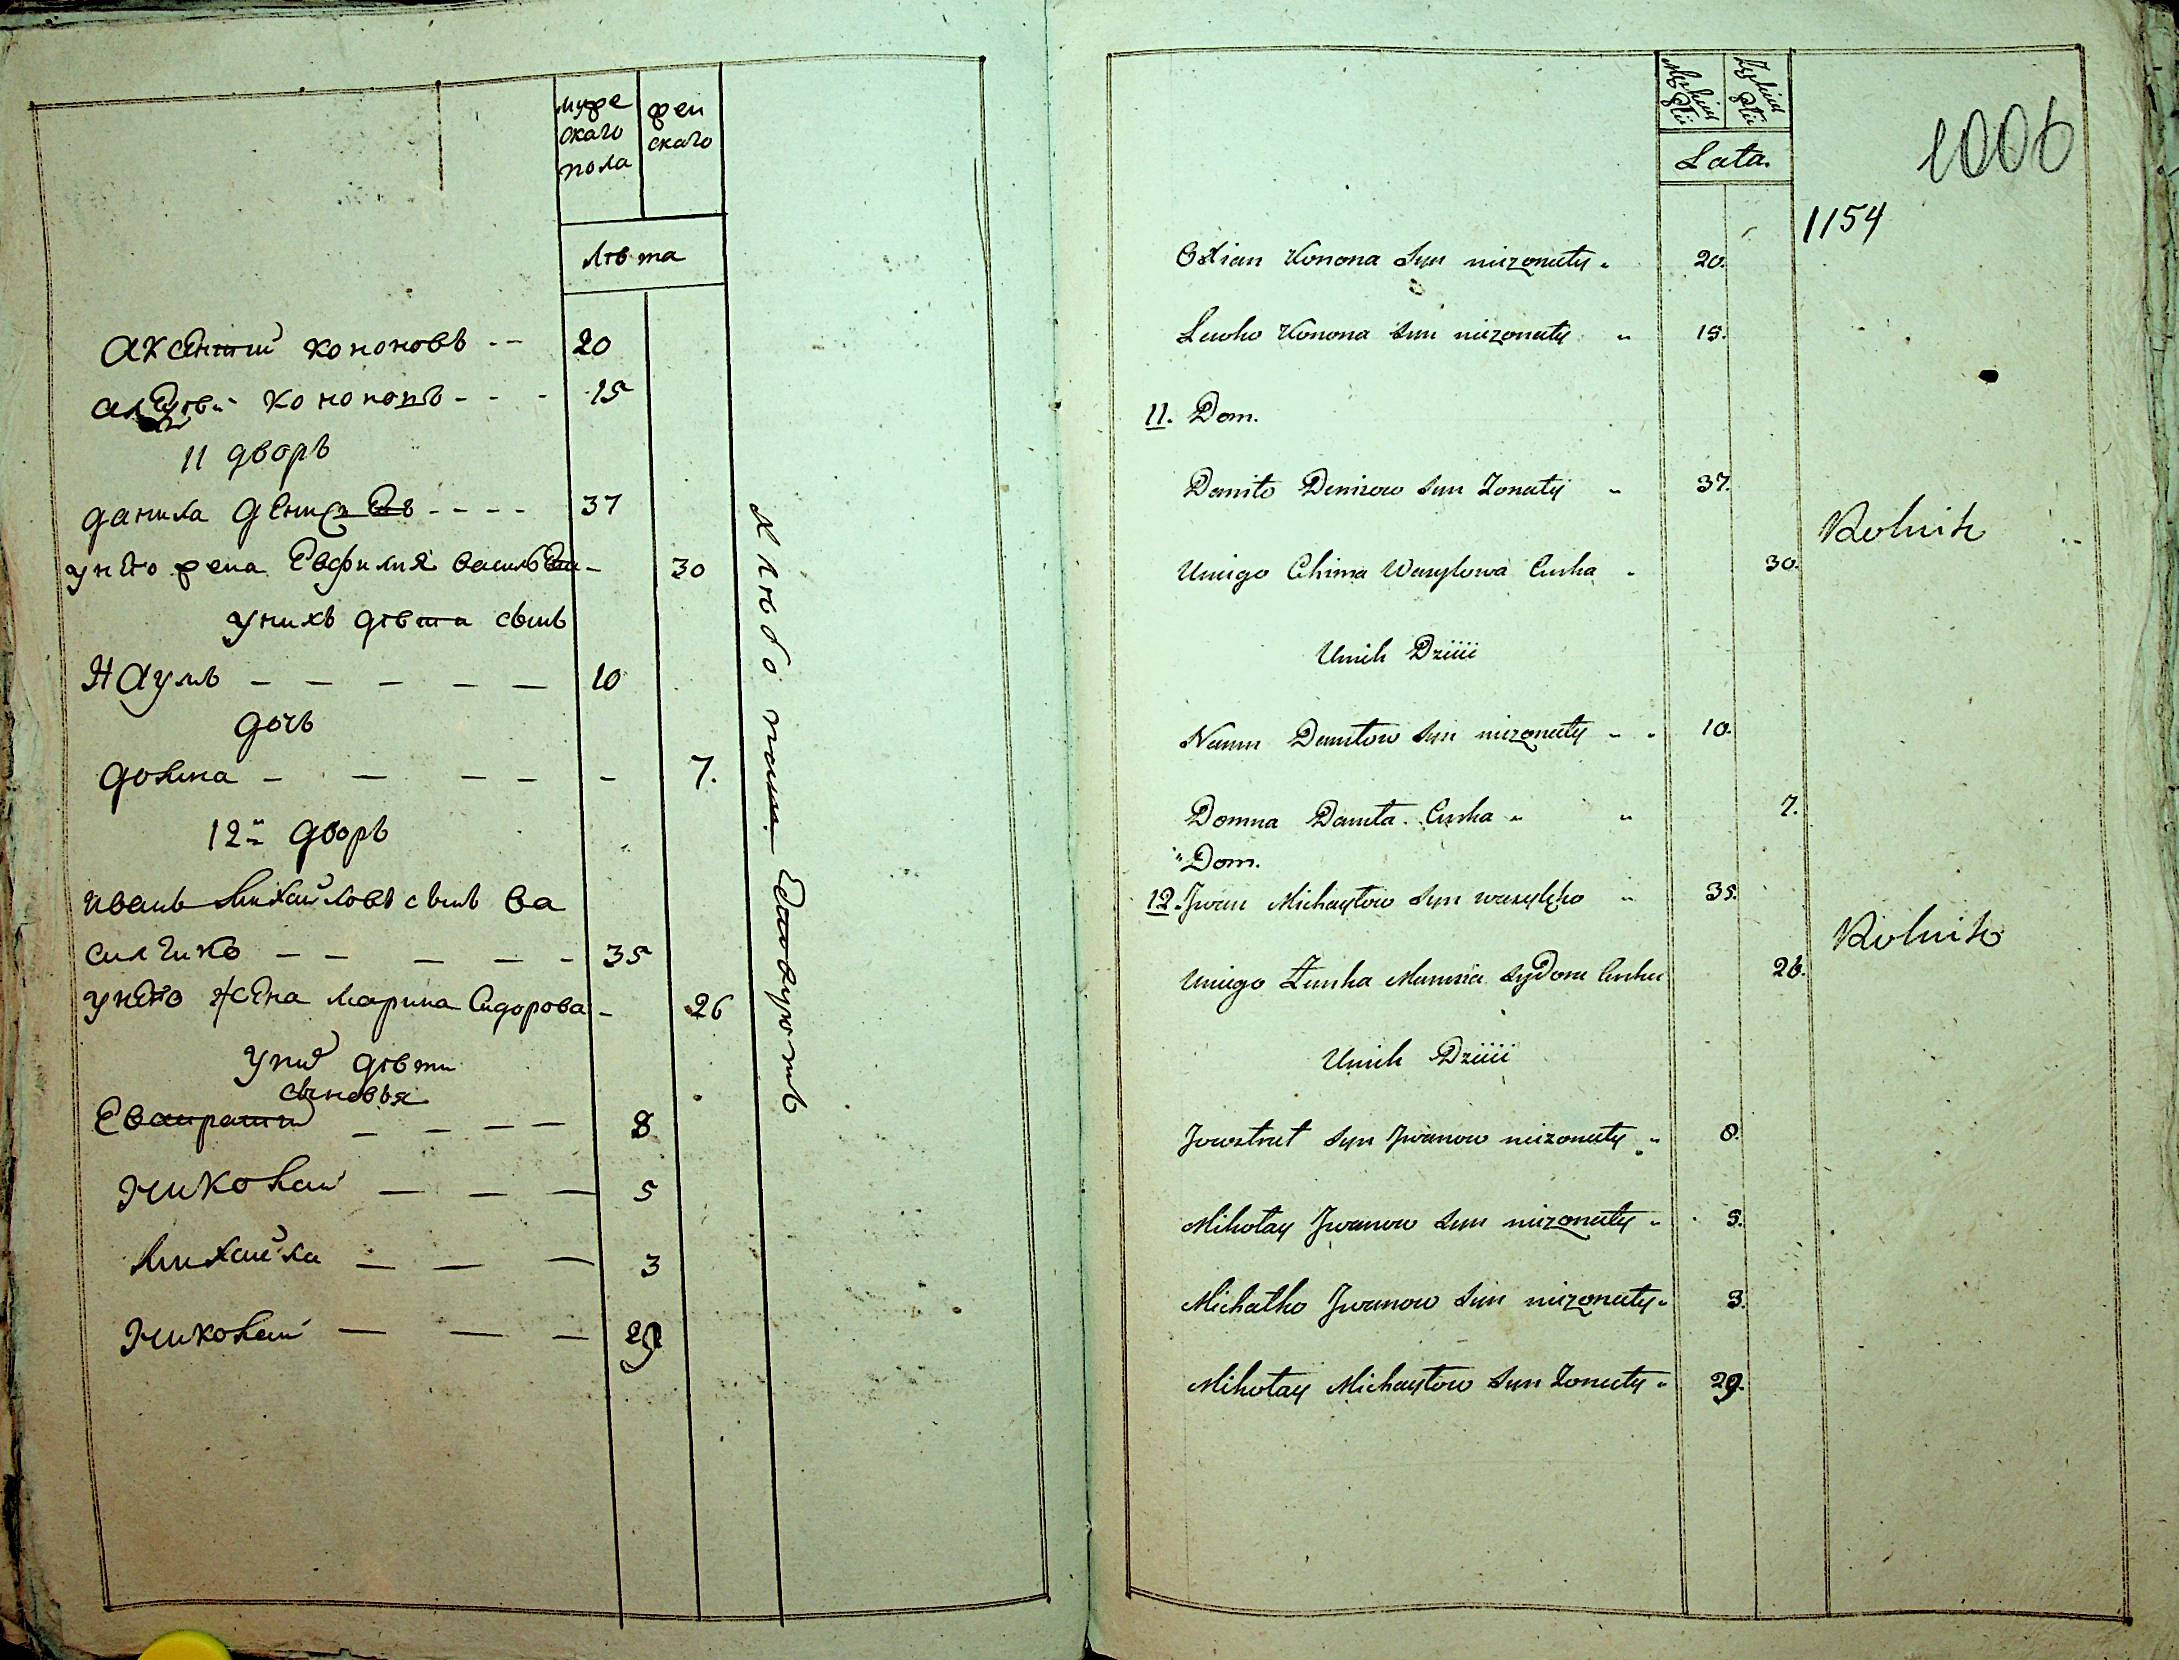 муже
скаго
пола
жен
скаго
лѣта
Аксентий Кононовъ 20
Кононовъ 15
11 дворъ
Данила Денисовъ 37
у него жена Евфимия 30
у нихъ дѣти сынъ
Наумъ 10
дочь
Домна 7.
12й дворъ
Иванъ Михайловъ сынъ Ва
силчико 35
у него жена Марина Сидорова 26
у них дѣти
сыновья
Евстратий 8
Николай 5
Михайла 3
Николай 29
Męskiey Płci
Żeńskiey Płci
Lata.
1006
1154
Konona Syn nieżonaty 20.
Lewko Konona Syn nieżonaty 15.
11. Dom.
Daniło Denisow Syn Żonaty 37.
Rolnik
Uniego Chima Wasylowa Curka 30.
Unich Dzieci
Naum Daniłow Syn nieżonaty 10.
Domna Daniła Curka 7.
Dom.
12. Jwan Michayłow Syn 35.
Rolnik
Uniego Żunka Sydora Curka 26.
Unich Dzieci
Jewstrat Syn Jwanow nieżonaty 8.
Mikołay Jwanow Syn nieżonaty 5.
Michałko Jwanow Syn nieżonaty 3.
Mikołay Michayłow Syn Żonaty 29.